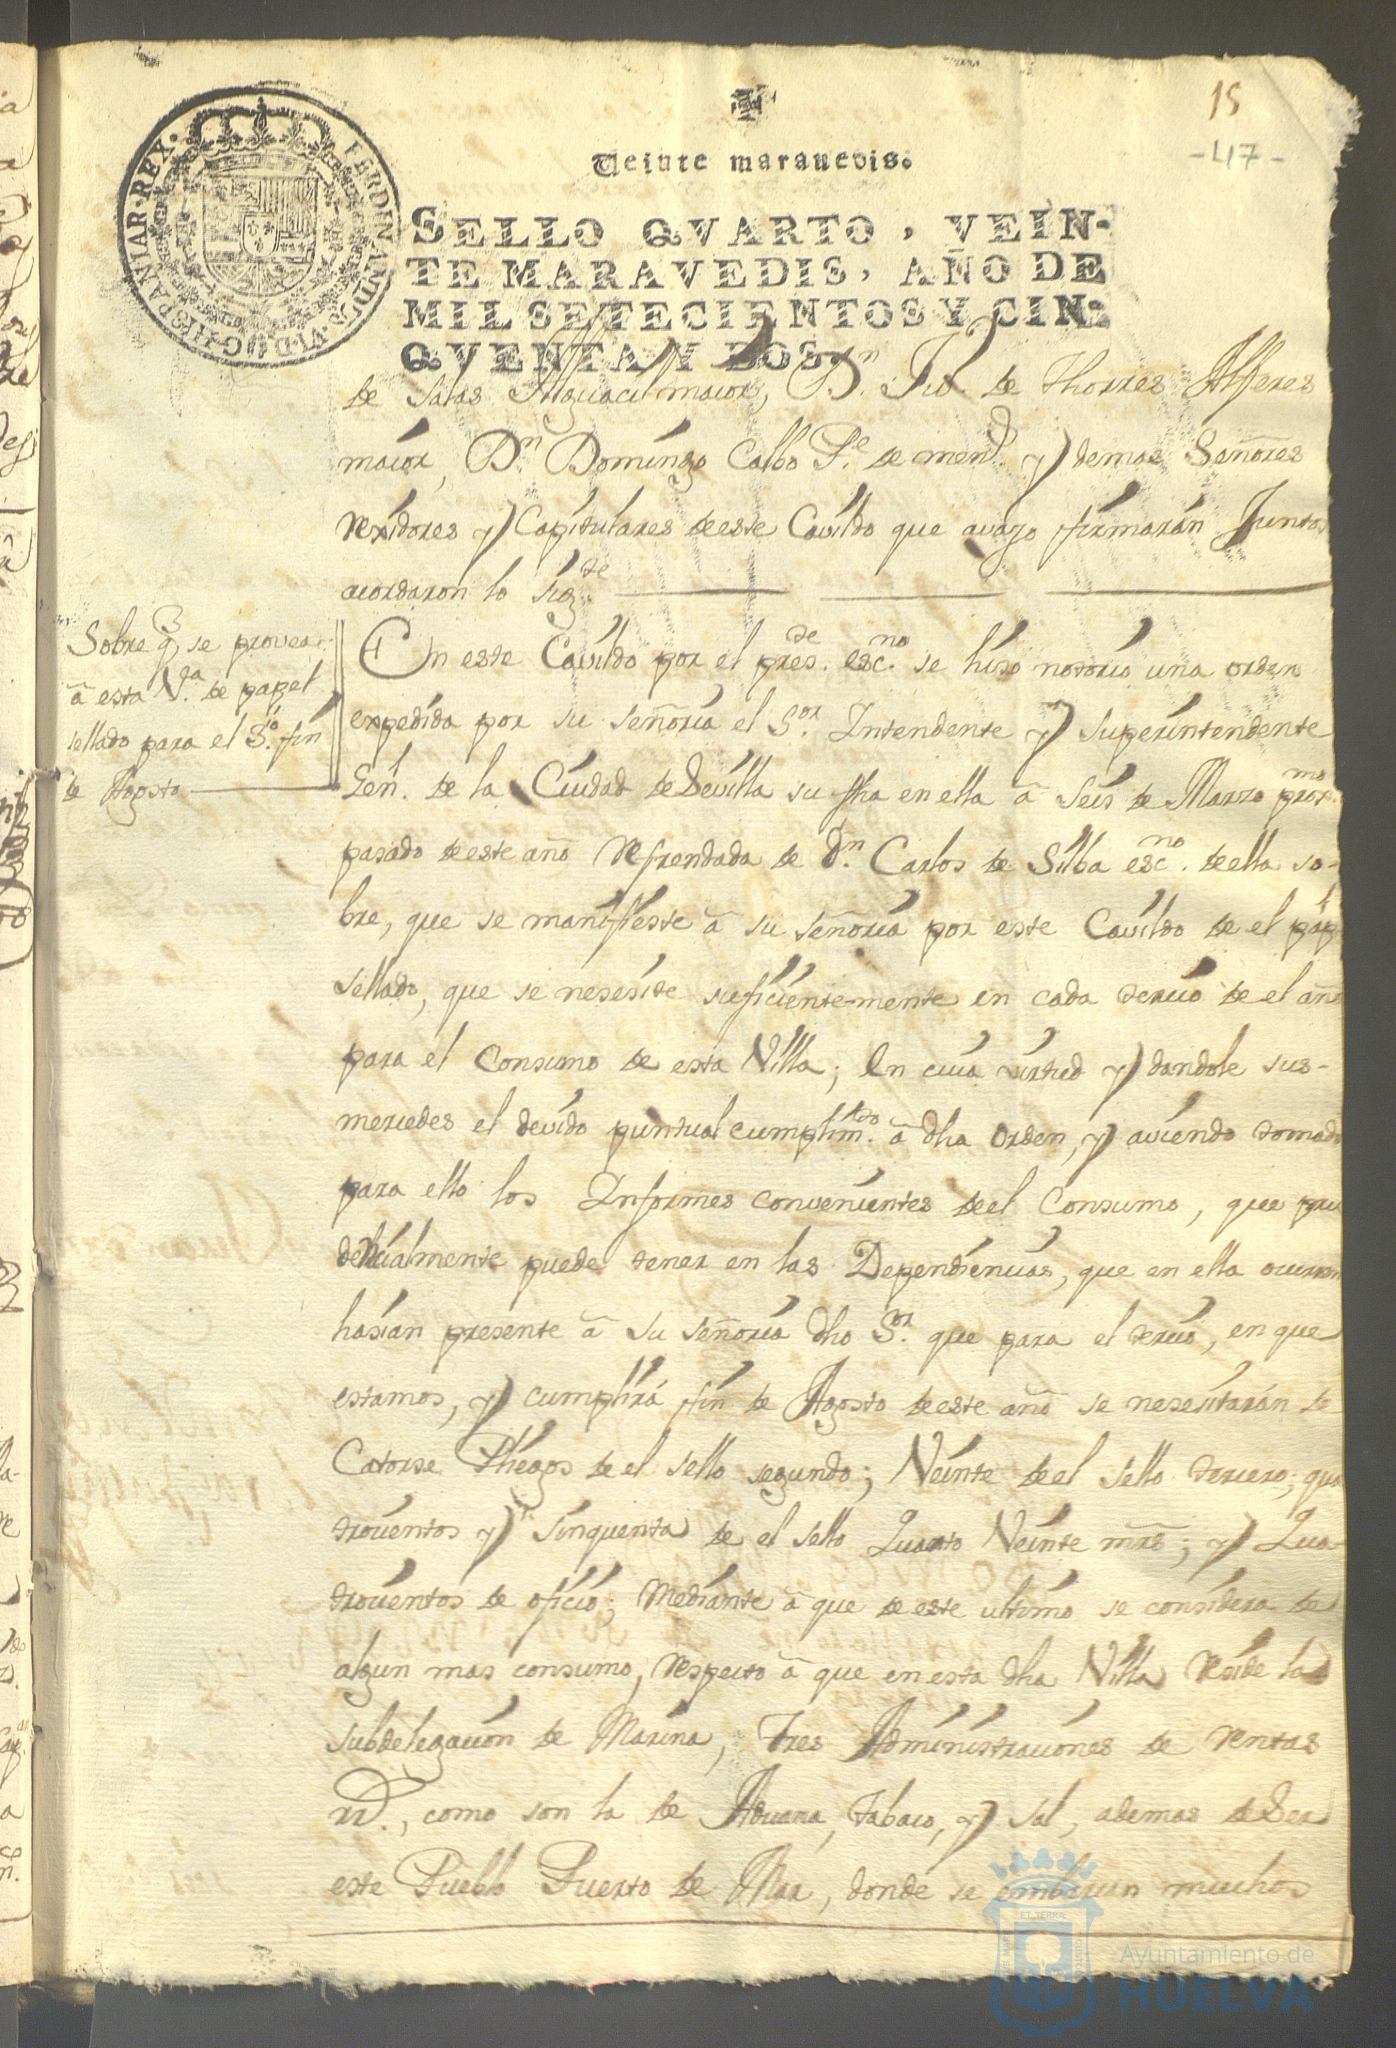 15
-47-
Veinte maravedis.
FERDINANDUS·VI·D·G·HISPANIAR·REX·
SELLO QVARTO, VEIN-
TE MARAVEDIS, AÑO DE
MIL SETECIENTOS Y CIN-
QVENTA Y DOS.
de Salas Alguacil maior, Dn. Juo. de Thorres Alferes
maior, Dn Domingo Calbo Pe. de mend. y demas Señores
rexidores y Capitulares de este Cavildo que avajo firmarán Juntos
acordaron lo sigde
Sobre q se provea
â esta Va. de papel
sellado para el 3o. fin
de Agosto
En este Cavildo por el presde. escno. se hiso notorio una orden
expedida por su señoria el Sor. Intendente y Superintendente
Gen. de la Ciudad de Sevilla su fha en ella â seis de Marzo proxmo
pasado de este año refrendada de Dn. Carlos de Silba escno. de ella so-
bre, que se manifieste â su señoria por este Cavildo de el pap
sellado, que se nesesite suficiente-mente en cada tercio de el año
para el Consumo de esta Villa; En cuia virtud y dandole sus-
mercedes el devido puntual cumplimto. â dha Orden, y aviendo tomado
para ello los Informes convenientes de el Consumo, que pru
dencialmente puede tener en las Dependencias, que en ella ocurren
hasian presente â su señoria dho Sor. que para el tercio, en que
estamos, y cumplirá fin de Agosto de este año se nesesitarán de
Catorse Pliegos de el sello segundo; Veinte de el sello tercero; qua
trocientos y sinquenta de el sello Quarto Veinte mrs; y Qua
trocientos de oficio; Mediante â que de este ultimo se considera de
algun mas consumo, respecto â que en esta dha Villa reside la
subdelegacion de Marina, Tres Administraciones de rentas
rs., como son la de Aduana, tabaco, y sal, ademas de Ser
este Pueblo Puerto de Mar, donde se embarcan muchos
ET TERRA
Ayuntamiento de
HUELVA